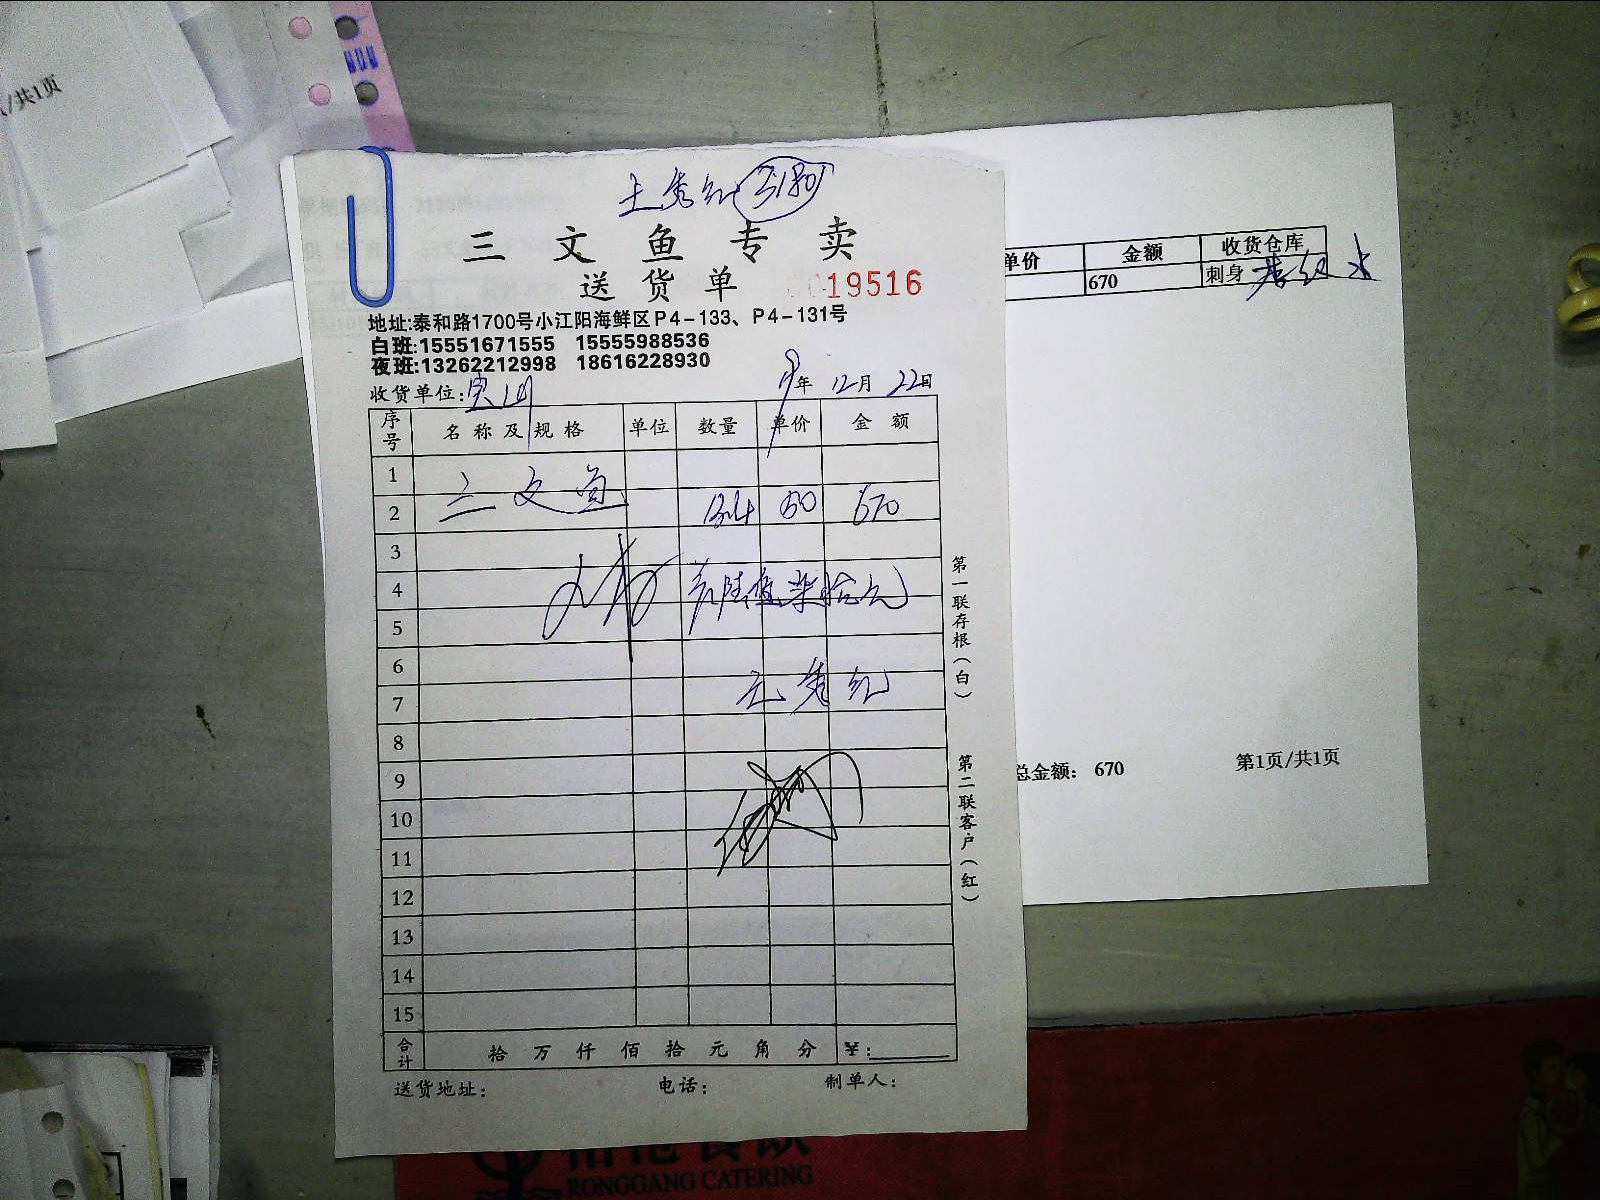 /共1页
三文鱼专卖
送货单
19516
地址:泰和路1700号小江阳海鲜区P4-133、P4-131号
白班:15551671555 15555988536
夜班:13262212998 18616228930
收货单位:
19年 12月 22日
序号 名称及规格 单位 数量 单价 金额
1
三文鱼
2 13.4 50 670
3
4 陆佰柒拾元
5
6
7
8
9
10
11
12
13
14
15
合计 拾 万 仟 佰 拾 元 角 分 ¥:
送货地址: 电话: 制单人:
第一联存根(白)
第二联客户(红)
单价 金额 收货仓库
670 刺身
总金额: 670 第1页/共1页
RONGGANG CATERING